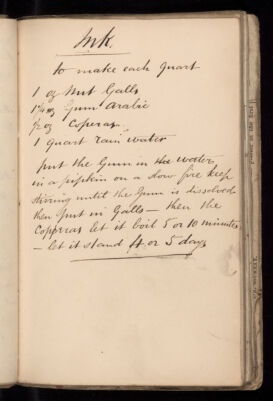 Ink.
to make each Quart
1 oz Nut Galls
1¼ oz Gum Arabic
½ oz Coperas
1 Quart rain water
put the Gum in the water
in a pipkin on a slow fire keep
stirring until the Gum is dissolved
then put in Galls — then the
Copperas let it boil 5 or 10 minutes
— let it stand 4 or 5 days